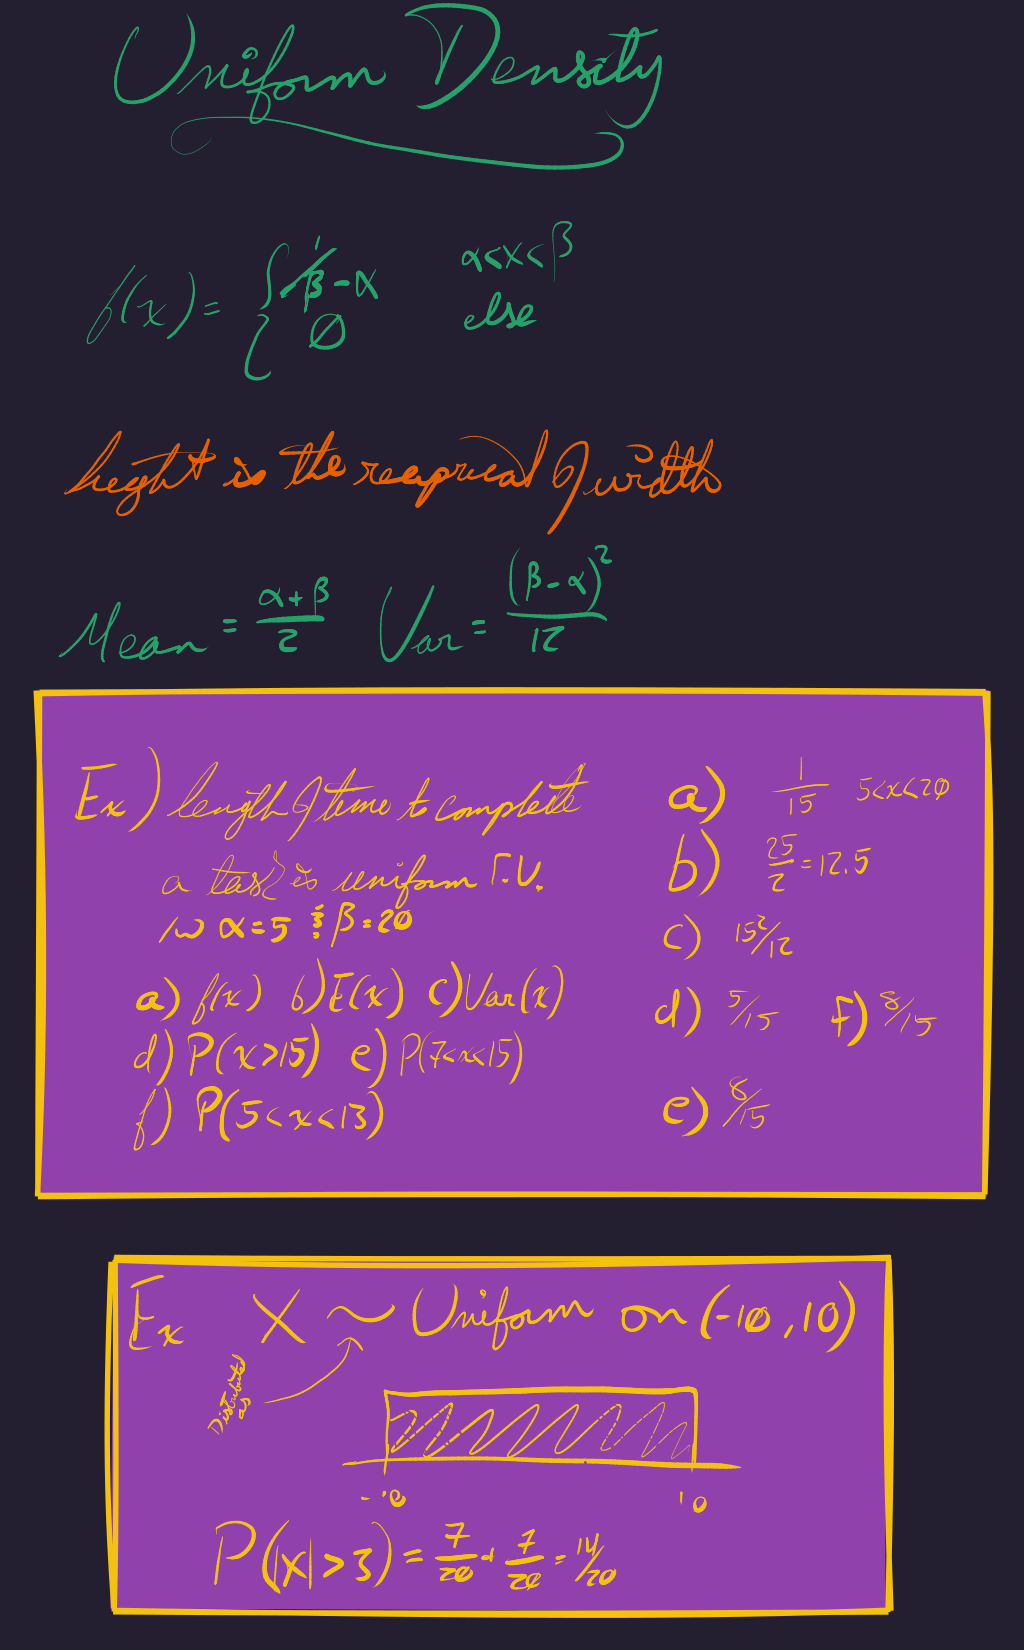 Uniform Density
f(x) = { 1/β-α    α<x<β
∅    else
height is the reciprical of width
Mean = α+β/2    Var = (β-α)²/12
Ex) length of time to complete
a task is uniform r.v.
w α=5 & β=20
a) f(x)  b) E(x)  c) Var(x)
d) P(x>15)  e) P(7<x<15)
f) P(5<x<13)
a) 1/15  5<x<20
b) 25/2 = 12.5
c) 15²/12
d) 5/15  f) 8/15
e) 8/15
Ex  X ~ Uniform on (-10, 10)
Distributed
as
-10  10
P(|X|>3) = 7/20 + 7/20 = 14/20